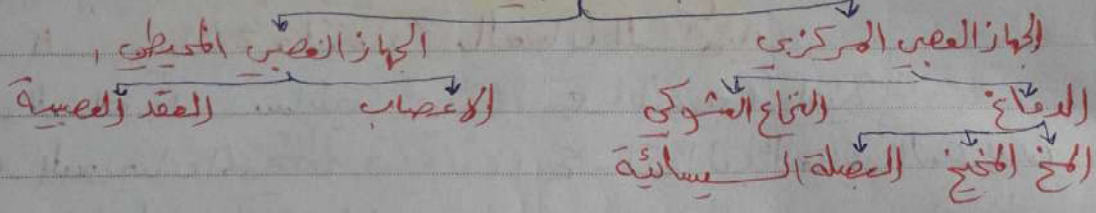 الجهاز العصبي المركزي الجهاز العصبي المحيطي
الدماغ النخاع الشوكي الاعصاب العقد العصبية
المخ المخيخ البصلة السيسائية